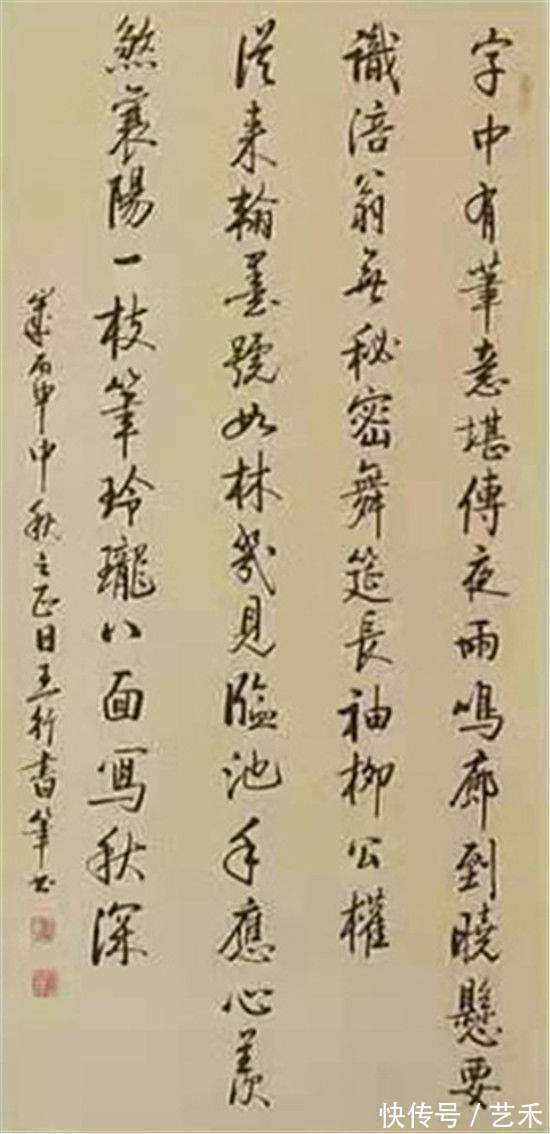 字中有筆意堪傳夜雨鳴廊到曉懸要
識涪翁無秘密舞筵長袖柳公權
從来翰墨號如林幾見臨池手應心羨
煞襄陽一枝筆玲瓏八面寫秋深
歲丙申中秋之正日王行書筆
快传号 / 艺禾